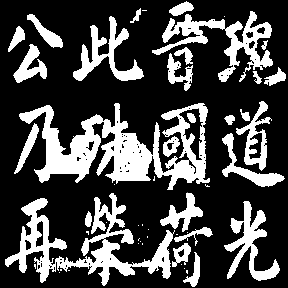 瑰道光
晉國荷
此殊榮
公乃再